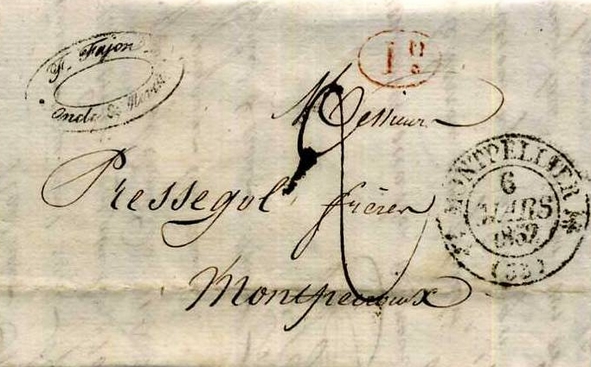 F. Fajon
1 D
Messieurs
Pressegol frères
Montpeiroux
MONTPELLIER
6
MARS
(33)